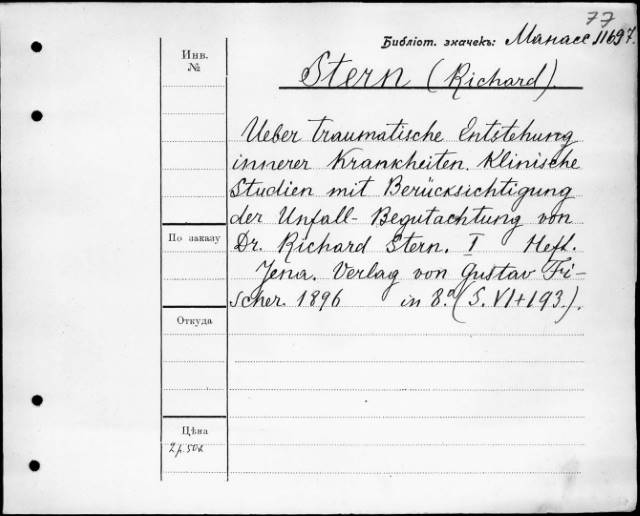 77
Библіот. значекъ: Манасе 11697
Инв. №
Stern (Richard).
Ueber traumatische Entstehung
innerer Krankheiten. Klinische
Studien mit Berücksichtigung
der Unfall-Begutachtung von
По заказу
Dr. Richard Stern. I Heft.
Jena. Verlag von Gustav Fi-
scher. 1896 in 8.° (S. VI+193.).
Откуда
Цѣна
2 р. 50 к